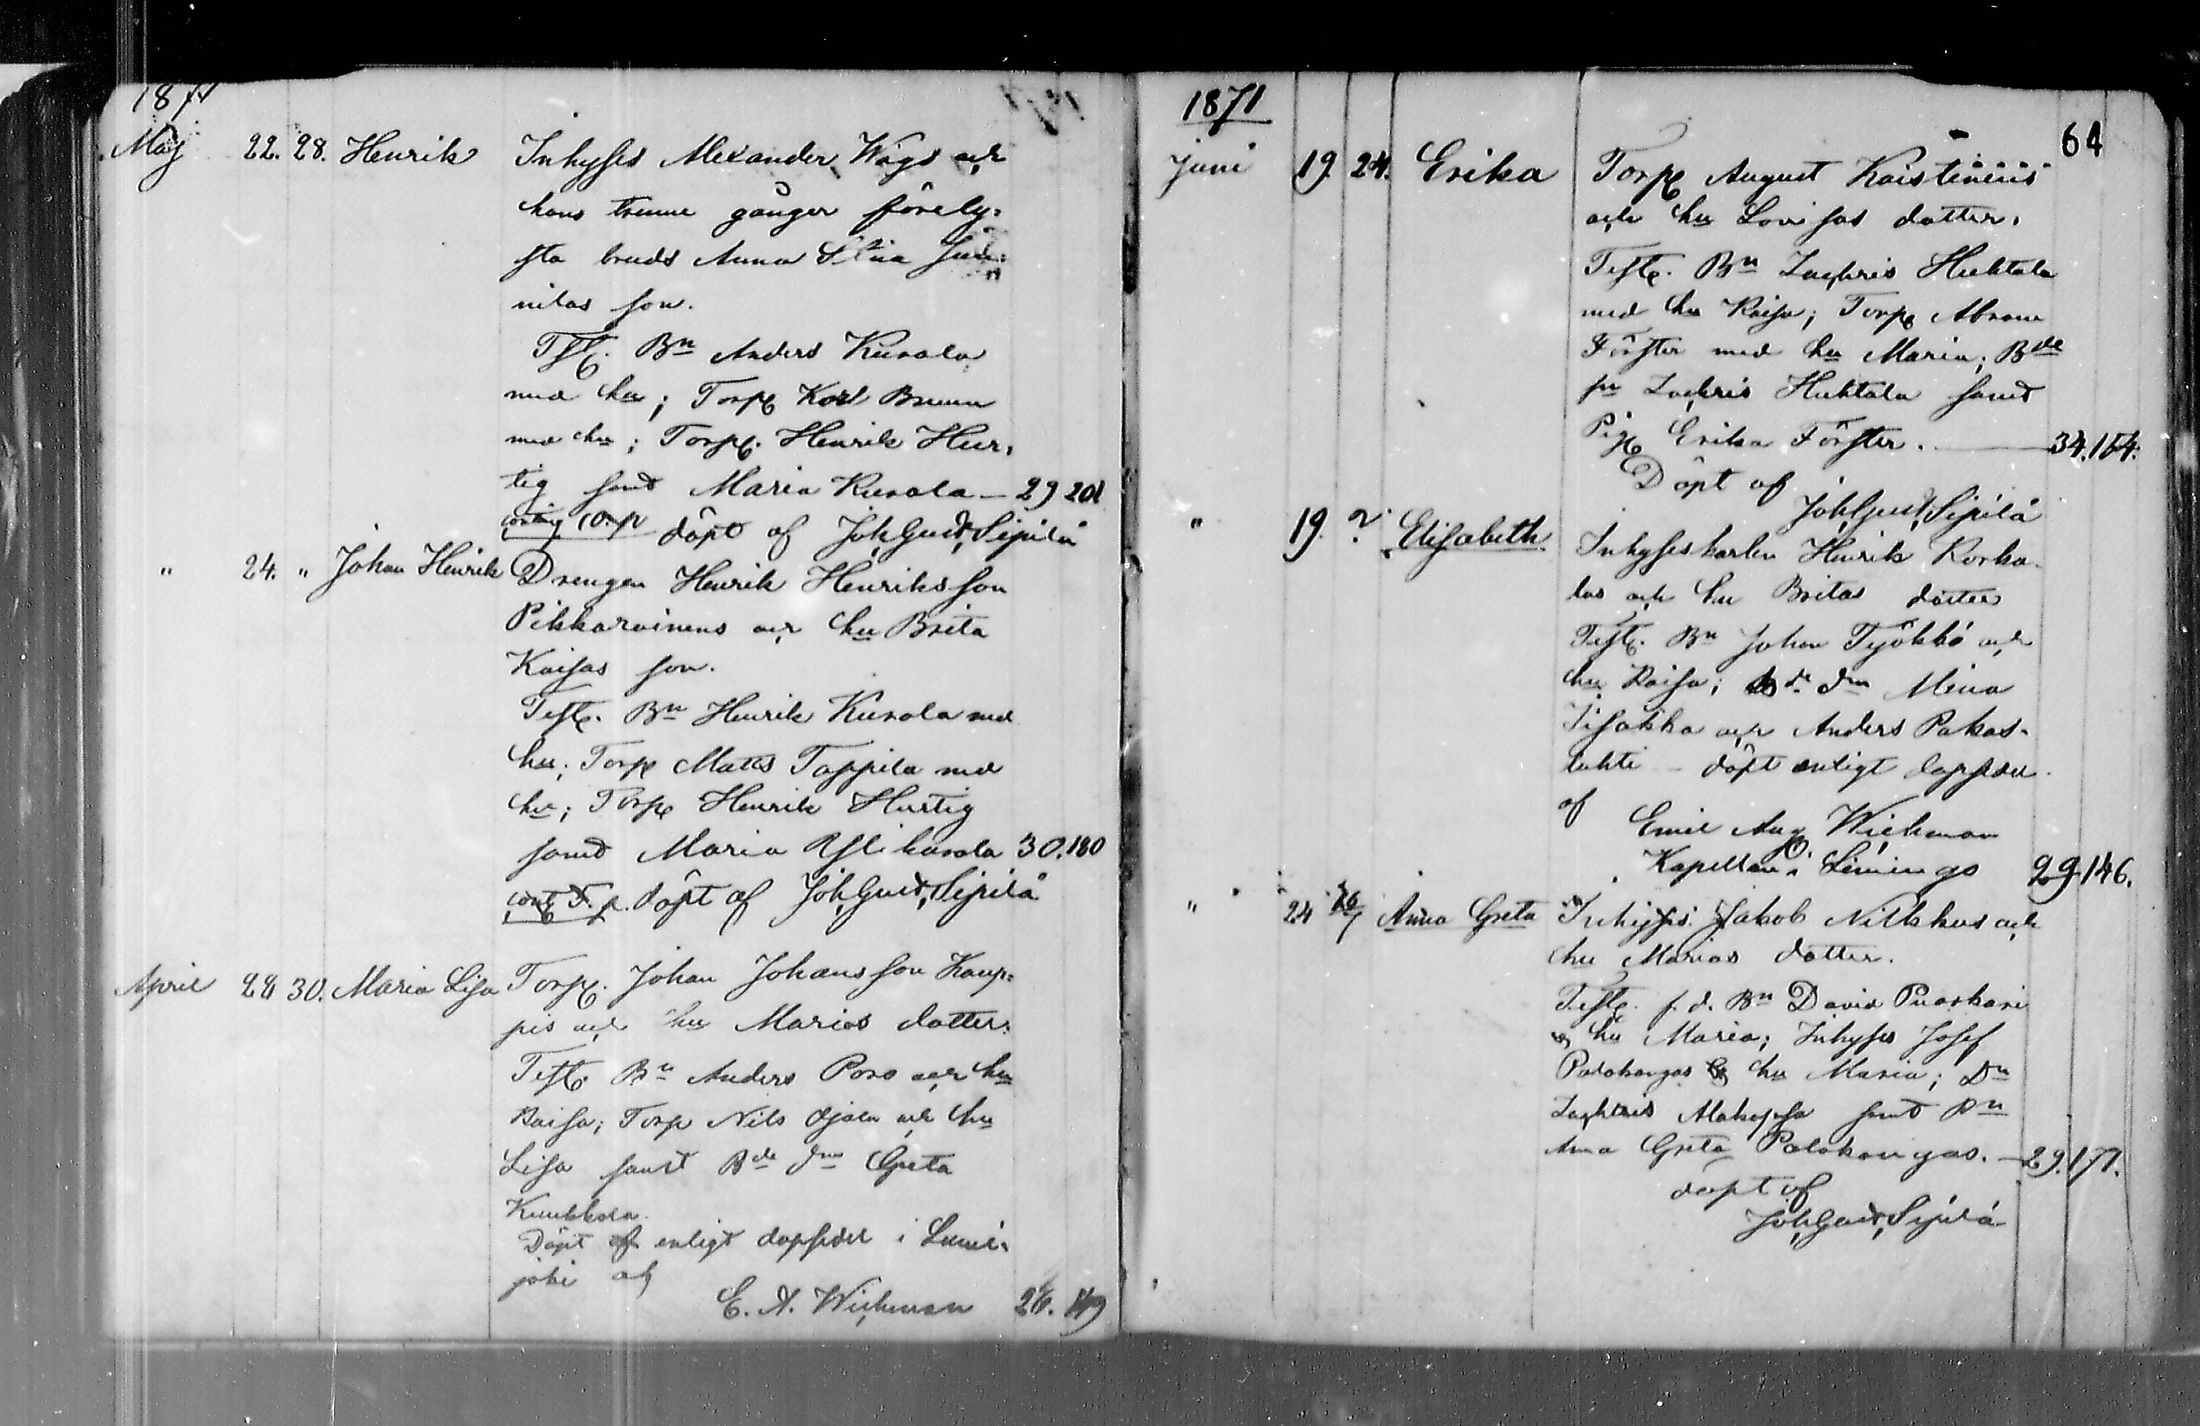 1871
Maj 22. 28. Henrik Inhyses Alexander Wägs och
hans trenne gånger förely-
sta bruds Anna Stina
nilas son.
Test. Bn Anders Kurola
med hu; Torp Karl Brunn
med hu; Torp. Henrik Hur-
tig samt Maria Kurola — 29 201
döpt af Joh. Gust. Sipilä
" 24. " Johan Henrik Drengen Henrik Henriksson
Pikkarainens och hu Brita
Kaisas son.
Test. Bn Henrik Kurola med
hu; Torp Matts Tappila med
hu; Torp Henrik Hurtig
samt Maria Ylikurola 30.180
döpt af Joh. Gust. Sipilä
April 24 30. Maria Lisa Torp. Johan Johansson Kaup-
pis och hu Marias dotter.
Test. Bn Anders Poro och hu
Kaisa; Torp Nils Ojala och hu
Lisa samt Bde dn Greta
Döpt enligt dopsedel i Lumi-
joki af
E. A. Wichman 26. 149
64
1871
Juni 19 24. Erika Torp August Kaistinens
och hu Lovisas dotter.
Test. Bn Zachris Huhtala
med hu Kaisa; Torp Abram
Förster med hu Maria; Bde
sn Zachris Huhtala samt
Pig Erika Förster. — 34.154.
Döpt af
Joh. Gust. Sipilä
" 19. ? Elisabeth. Inhyseskarlen Henrik Korka-
las och hu Britas dotter
Test. Bn Johan Työkkö och
hu Kaisa; Bde dn Mina
och Anders Pakas-
lahti – döpt enligt dopsedel
af
Emil Aug. Wichman
Kapellan i Limingo 29.146.
" 24 26/7 Anna Greta Inhyses Jakob Nikkus och
hu Marias dotter.
Test. f. d. Bn David Puaskari
& hu Maria; Inhyses Josef
Palokangas & hu Maria; Dn
Zachris samt Pn
Anna Greta Palokangas. — 29.177.
döpt af
Joh. Gust. Sipilä